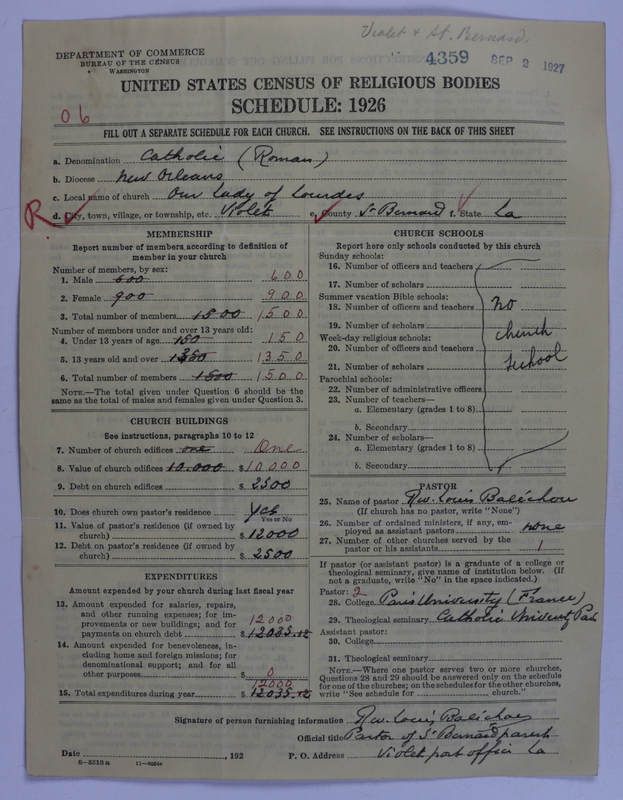 Violet & St. Bernard.
4359 SEP 2 1927
DEPARTMENT OF COMMERCE
BUREAU OF THE CENSUS
WASHINGTON
UNITED STATES CENSUS OF RELIGIOUS BODIES
SCHEDULE: 1926
06
FILL OUT A SEPARATE SCHEDULE FOR EACH CHURCH. SEE INSTRUCTIONS ON THE BACK OF THIS SHEET
a. Denomination Catholic (Roman)
b. Diocese New Orleans
c. Local name of church Our Lady of Lourdes
R d. City, town, village, or township, etc. Violet e. County St Bernard f. State La
MEMBERSHIP
Report number of members according to definition of
member in your church
Number of members, by sex:
1. Male 600 600
2. Female 900 900
3. Total number of members 1500 1500
Number of members under and over 13 years old:
4. Under 13 years of age 150 150
5. 13 years old and over 1350 1350
6. Total number of members 1500 1500
NOTE.—The total given under Question 6 should be the
same as the total of males and females given under Question 3.
CHURCH BUILDINGS
See instructions, paragraphs 10 to 12
7. Number of church edifices one One
8. Value of church edifices 10.000 $ 10000
9. Debt on church edifices $ 2500
10. Does church own pastor's residence yes
Yes or No
11. Value of pastor's residence (if owned by
church) $ 12000
12. Debt on pastor's residence (if owned by
church) $ 2500
EXPENDITURES
Amount expended by your church during last fiscal year
13. Amount expended for salaries, repairs,
and other running expenses; for im-
provements or new buildings; and for 12000
payments on church debt $ 12035.12
14. Amount expended for benevolences, in-
cluding home and foreign missions; for
denominational support; and for all
other purposes $ 0
12000
15. Total expenditures during year $ 12035.12
CHURCH SCHOOLS
Report here only schools conducted by this church
Sunday schools:
16. Number of officers and teachers
17. Number of scholars
Summer vacation Bible schools:
18. Number of officers and teachers no
19. Number of scholars church
Week-day religious schools:
20. Number of officers and teachers school
21. Number of scholars
Parochial schools:
22. Number of administrative officers
23. Number of teachers—
a. Elementary (grades 1 to 8)
b. Secondary
24. Number of scholars—
a. Elementary (grades 1 to 8)
b. Secondary
PASTOR
25. Name of pastor Rev. Louis Balichou
(If church has no pastor, write "None")
26. Number of ordained ministers, if any, em-
ployed as assistant pastors none
27. Number of other churches served by the
pastor or his assistants 1
If pastor (or assistant pastor) is a graduate of a college or
theological seminary, give name of institution below. (If
not a graduate, write "No" in the space indicated.)
Pastor: 2
28. College Paris University (France)
29. Theological seminary Catholic
Assistant pastor:
30. College
31. Theological seminary
NOTE.—Where one pastor serves two or more churches,
Questions 28 and 29 should be answered only on the schedule
for one of the churches; on the schedules for the other churches,
write "See schedule for church."
Signature of person furnishing information Rev. Louis Balichou
Official title Pastor of St Bernard parish
Date , 192 P. O. Address Violet post office La
6—5518 a